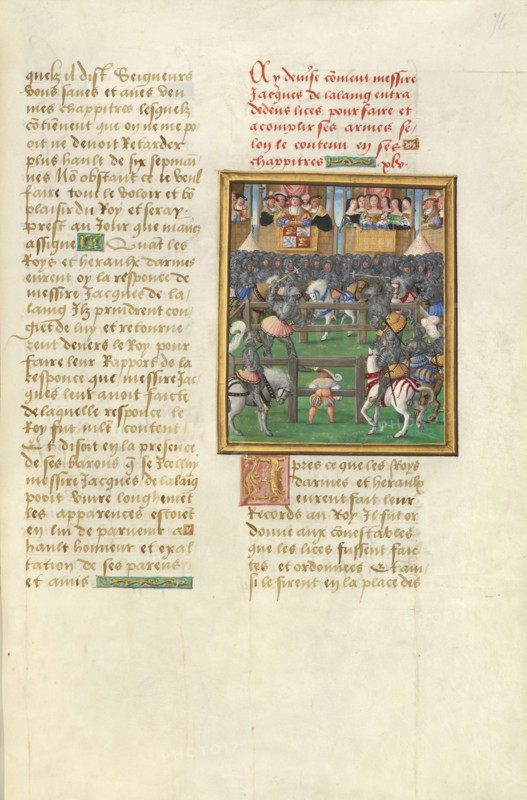 quelz il dist Seigneurs
vous saues et aues veu
mes chappitres lesquelz
contiennent que on ne me po
oit ne deuoit Retarder
plus hault de six sepmai
nes No obstant ce ie veul
faire tout le voloir et bo
plaisir du Roy et seray
prest au Jour que mauez
assigne Quat les
Roys et heraulx darmes
eurent oy la responce de
messire Jacques de la
laing Ilz prindrent con
giet de luy et retourne
rent deuers le Roy pour
faire leur Rapport de la
responce que messire Jac
ques leur auoit faicte
de laquelle responce le
Roy fut mlt content
Et disoit en la presence
de ses barons q se
messire Jacques de lalaig
pooit viure longhemet
les apparences estoiet
en lui de paruenir a
hault honneur et exal
tation de ses parens
et amis
Cy deuise coment messire
Jacques de lalaing entra
dedens lices pour faire et
acomplir ses armes se
lon le contenu en ses
chappitres xlv.
Apres ce que les Roys
darmes et heraulx
eurent fait leur
Records au Roy Il fut or
donne aux conestables
que les lices fussent faic
tes et ordonnees Et ain
si le firent en la place des